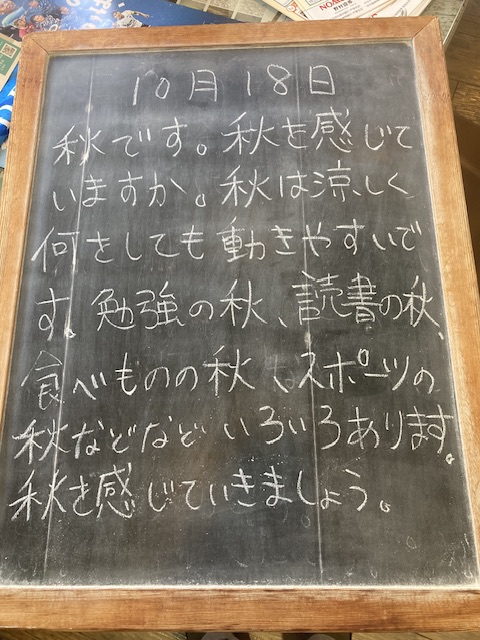 10月18日
秋です。秋を感じて
いますか。秋は涼しく
何をしても動きやすいで
す。勉強の秋、読書の秋、
食べものの秋、スポーツの
秋などなどいろいろあります。
秋を感じていきましょう。